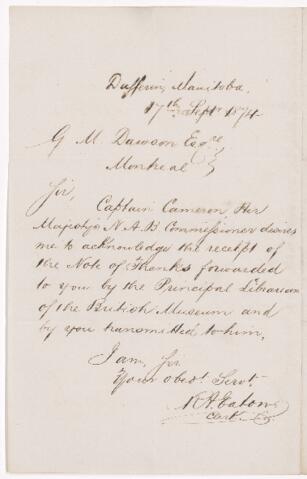 Dufferin, Manitoba.
17th Sept. 1874.
G. M. Dawson Esqre
Montreal
Sir,
Captain Cameron, Her
Majesty's N.A.B Commissioner desires
me to acknowledge the receipt of
the Note of Thanks forwarded
to you by the Principal Librarian
of the British Museum and
by you transmitted to him.
I am, Sir
Your obedt. Servt.
Clerk